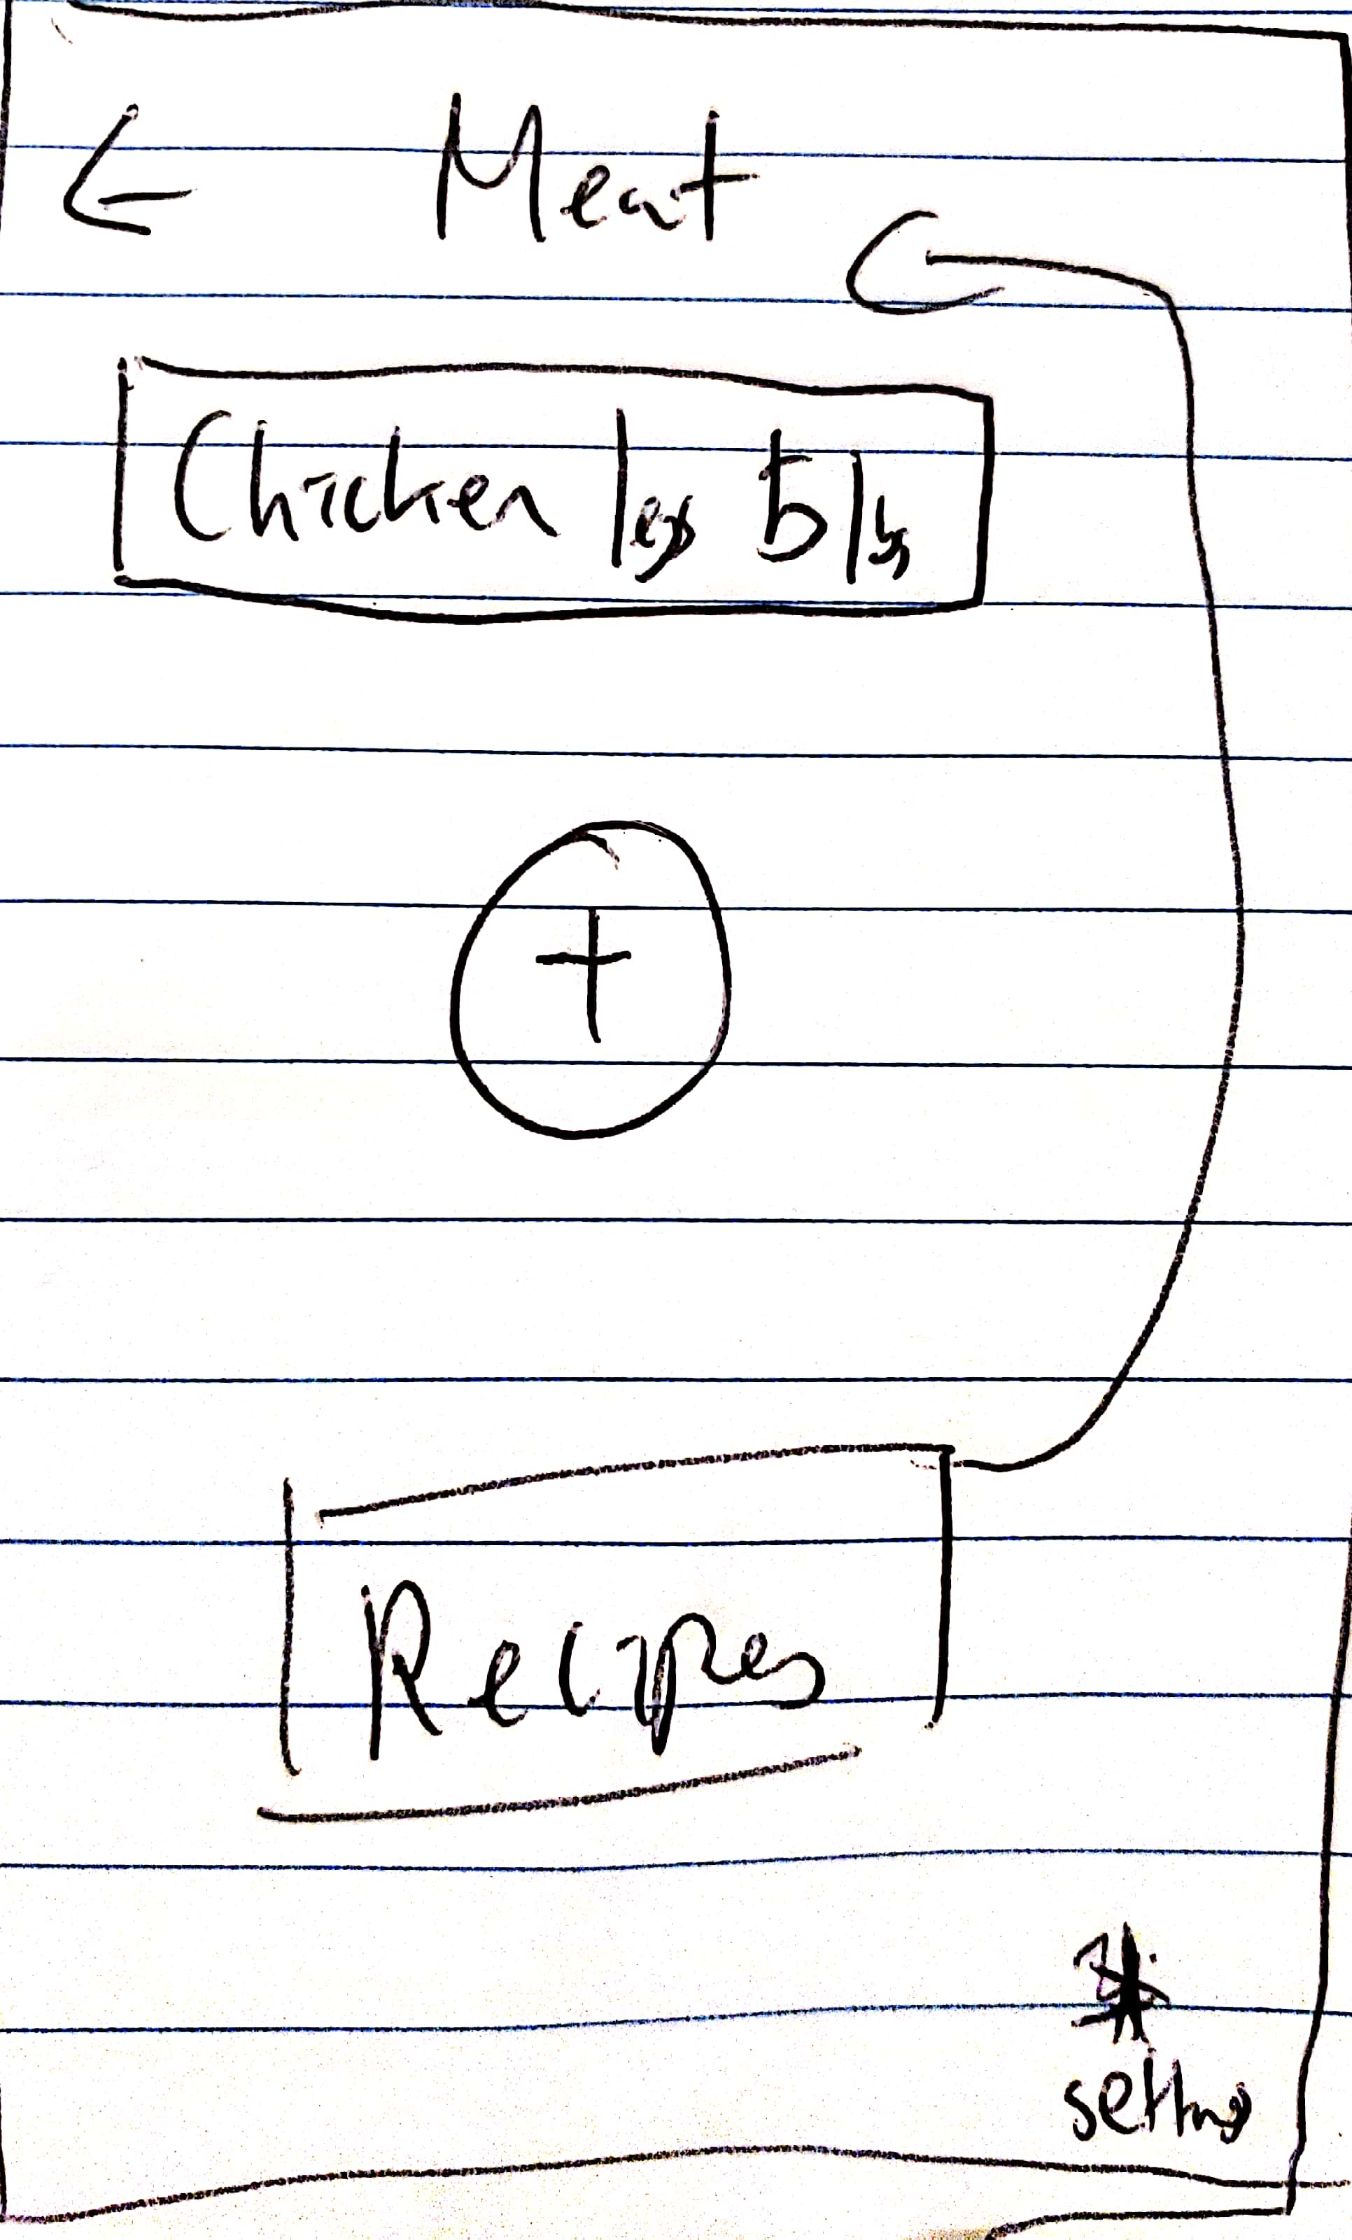 ← Meat
Chicken legs 5 lbs
+
Recipes
settings